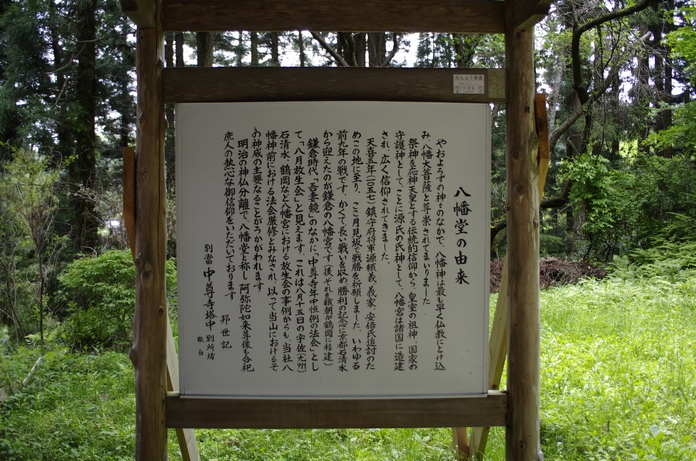 八幡堂の由来
やおよろずの神々のなかで、八幡神は最も早く仏教にとけ込
み、八幡大菩薩と尊崇されてまいりました
祭神を応神天皇とする伝統的信仰から、皇室の祖神、国家の
守護神として、ことに源氏の氏神として、八幡宮は諸国に造建
され、広く信仰されてきました。
天喜五年(一〇五七)鎮守府将軍源頼義、義家、安倍氏追討のた
めこの地に至り、ここ月見坂で戦勝を祈願しました。いわゆる
前九年の戦です。かくて長い戦いを収め勝利の記念に京都石清水
から迎えたのが鎌倉の八幡宮です(後それを頼朝が鶴岡に移建)
鎌倉時代、「吾妻鏡」のなかに、「中尊寺年中恒例の法会」とし
て、「八月放生会」と見えます。これは八月十五日の宇佐(九州)
石清水、鶴岡など八幡宮における放生会の事例からも、当社八
幡神前における法会厳修とみなされ、以って当山におけるそ
の神威の主要なることがうかがわれます
明治の神仏分離で、八幡堂と称し、阿弥陀如来尊像も合祀
庶人の熱心な御信仰をいただいております
邦世記
別當 中尊寺塔中 別所坊
敬白